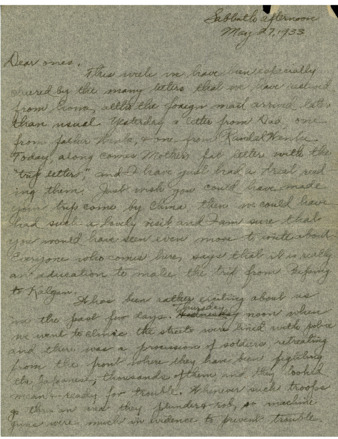 Sabbath afternoon
May 27, '33
Dear ones,
This week we have been especially
cheered by the many letters that we have received
from home, altho the foreign mail arrived later
than usual. Yesterday a letter from Dad, one
from father Wanke, & one from
Today, along comes Mother's fat letter with the
"trip letter," and I have just had a treat read
ing them. Just wish you could have made
your trip come by China then we could have
had such a lovely visit and I am sure that
you would have seen even more to write about.
Everyone who comes here, says that it is really
an education to make the trip from Peking
to Kalgan.
It has been rather exciting about us
in the past few days. Thursday noon when
we went to clinic the streets were lined with police
and there was a procession of soldiers, retreating
from the front where they have been fighting
the Japanese, thousands of them and they looked
mean & ready for trouble. Whenever such troops
go thru in war they plunder & rob, so machine
guns were much in evidence to prevent trouble.